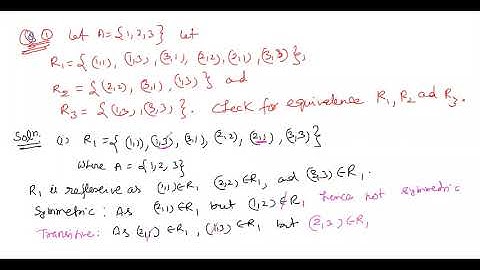 Q ① Let A = {1,2,3} Let
R₁ = {(1,1), (1,3), (3,1), (2,2), (2,1), (3,3)},
R₂ = {(2,2), (3,1), (1,3)} and
R₃ = {(1,3), (3,3)}. Check for equivalence R₁, R₂ ad R₃.
Soln. (1) R₁ = {(1,1), (1,3), (3,1), (2,2), (2,1), (3,3)}
Where A = {1,2,3}
R₁ is reflexive as (1,1) ∈ R₁ (2,2) ∈ R₁, ad (3,3) ∈ R₁.
Symmetric : As (2,1) ∈ R₁ but (1,2) ∉ R₁ hence not symmetric
Transitive : As (2,1) ∈ R₁, (1,3) ∈ R₁ but (2,3) ∈ R₁